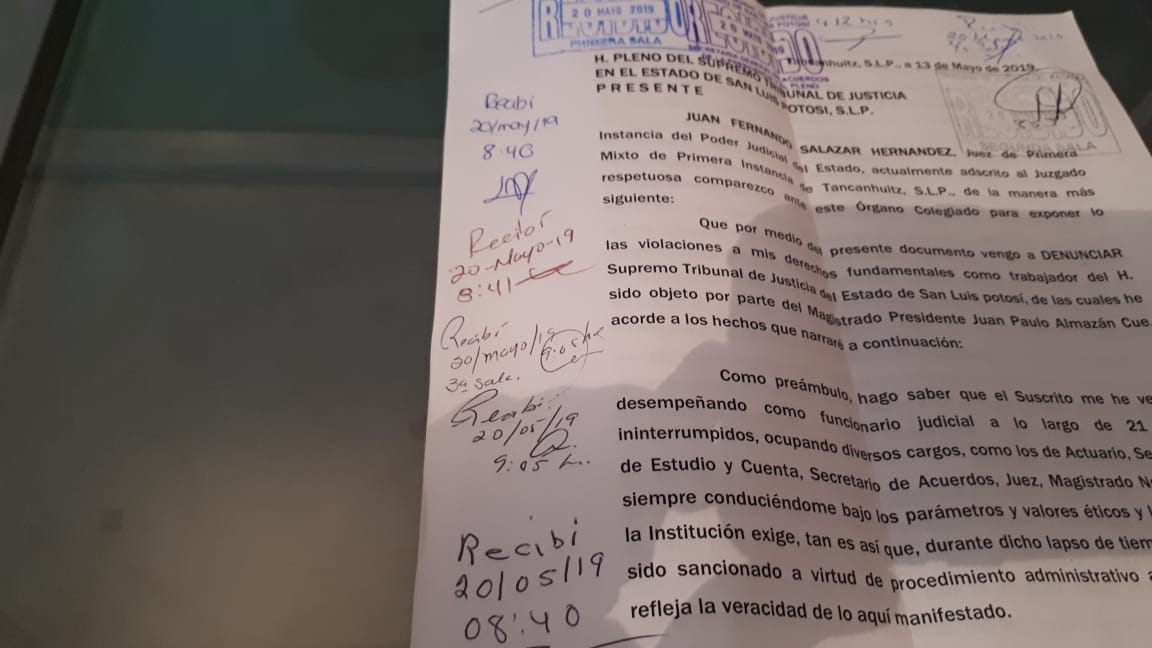 20 MAYO 2019
PRIMERA SALA
4:12 hrs
Tancanhuitz, S.L.P., a 13 de Mayo de 2019.
H. PLENO DEL SUPREMO TRIBUNAL DE JUSTICIA
EN EL ESTADO DE SAN LUIS POTOSI, S.L.P.
P R E S E N T E
SEGUNDA SALA
JUAN FERNANDO SALAZAR HERNANDEZ, Juez de Primera
Instancia del Poder Judicial del Estado, actualmente adscrito al Juzgado
Mixto de Primera Instancia de Tancanhuitz, S.L.P., de la manera más
respetuosa comparezco ante este Órgano Colegiado para exponer lo
siguiente:
Que por medio del presente documento vengo a DENUNCIAR
las violaciones a mis derechos fundamentales como trabajador del H.
Supremo Tribunal de Justicia del Estado de San Luis potosí, de las cuales he
sido objeto por parte del Magistrado Presidente Juan Paulo Almazán Cue
acorde a los hechos que narraré a continuación:
Como preámbulo, hago saber que el Suscrito me he ve
desempeñando como funcionario judicial a lo largo de 21
ininterrumpidos, ocupando diversos cargos, como los de Actuario, Se
de Estudio y Cuenta, Secretario de Acuerdos, Juez, Magistrado
siempre conduciéndome bajo los parámetros y valores éticos y
la Institución exige, tan es así que, durante dicho lapso de tiem
sido sancionado a virtud de procedimiento administrativo
refleja la veracidad de lo aquí manifestado.
Recibi
20/may/19
8:40
Recibí
20-Mayo-19
8:41
Recibí
20/mayo/19
9:05 hr
3a Sala.
Recibi
20/05/19
9:05 h.
Recibi
20/05/19
08:40